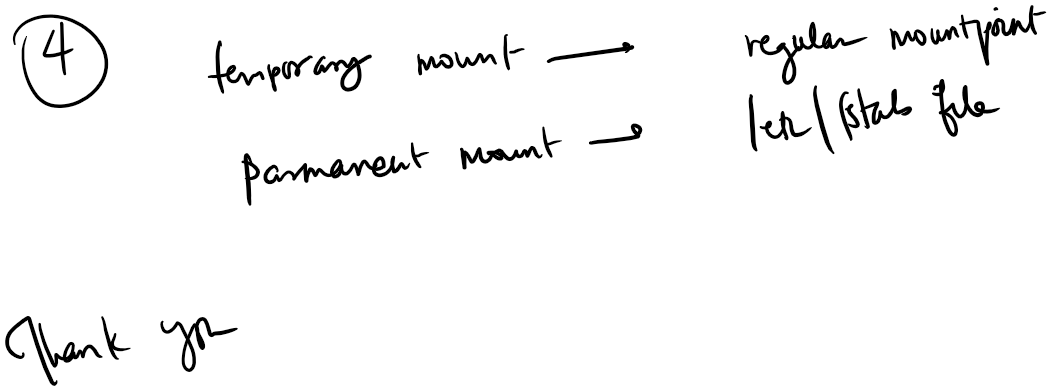 4 temporary mount → regular mountpoint
parmanent mount → /etc/fstab file
Thank you